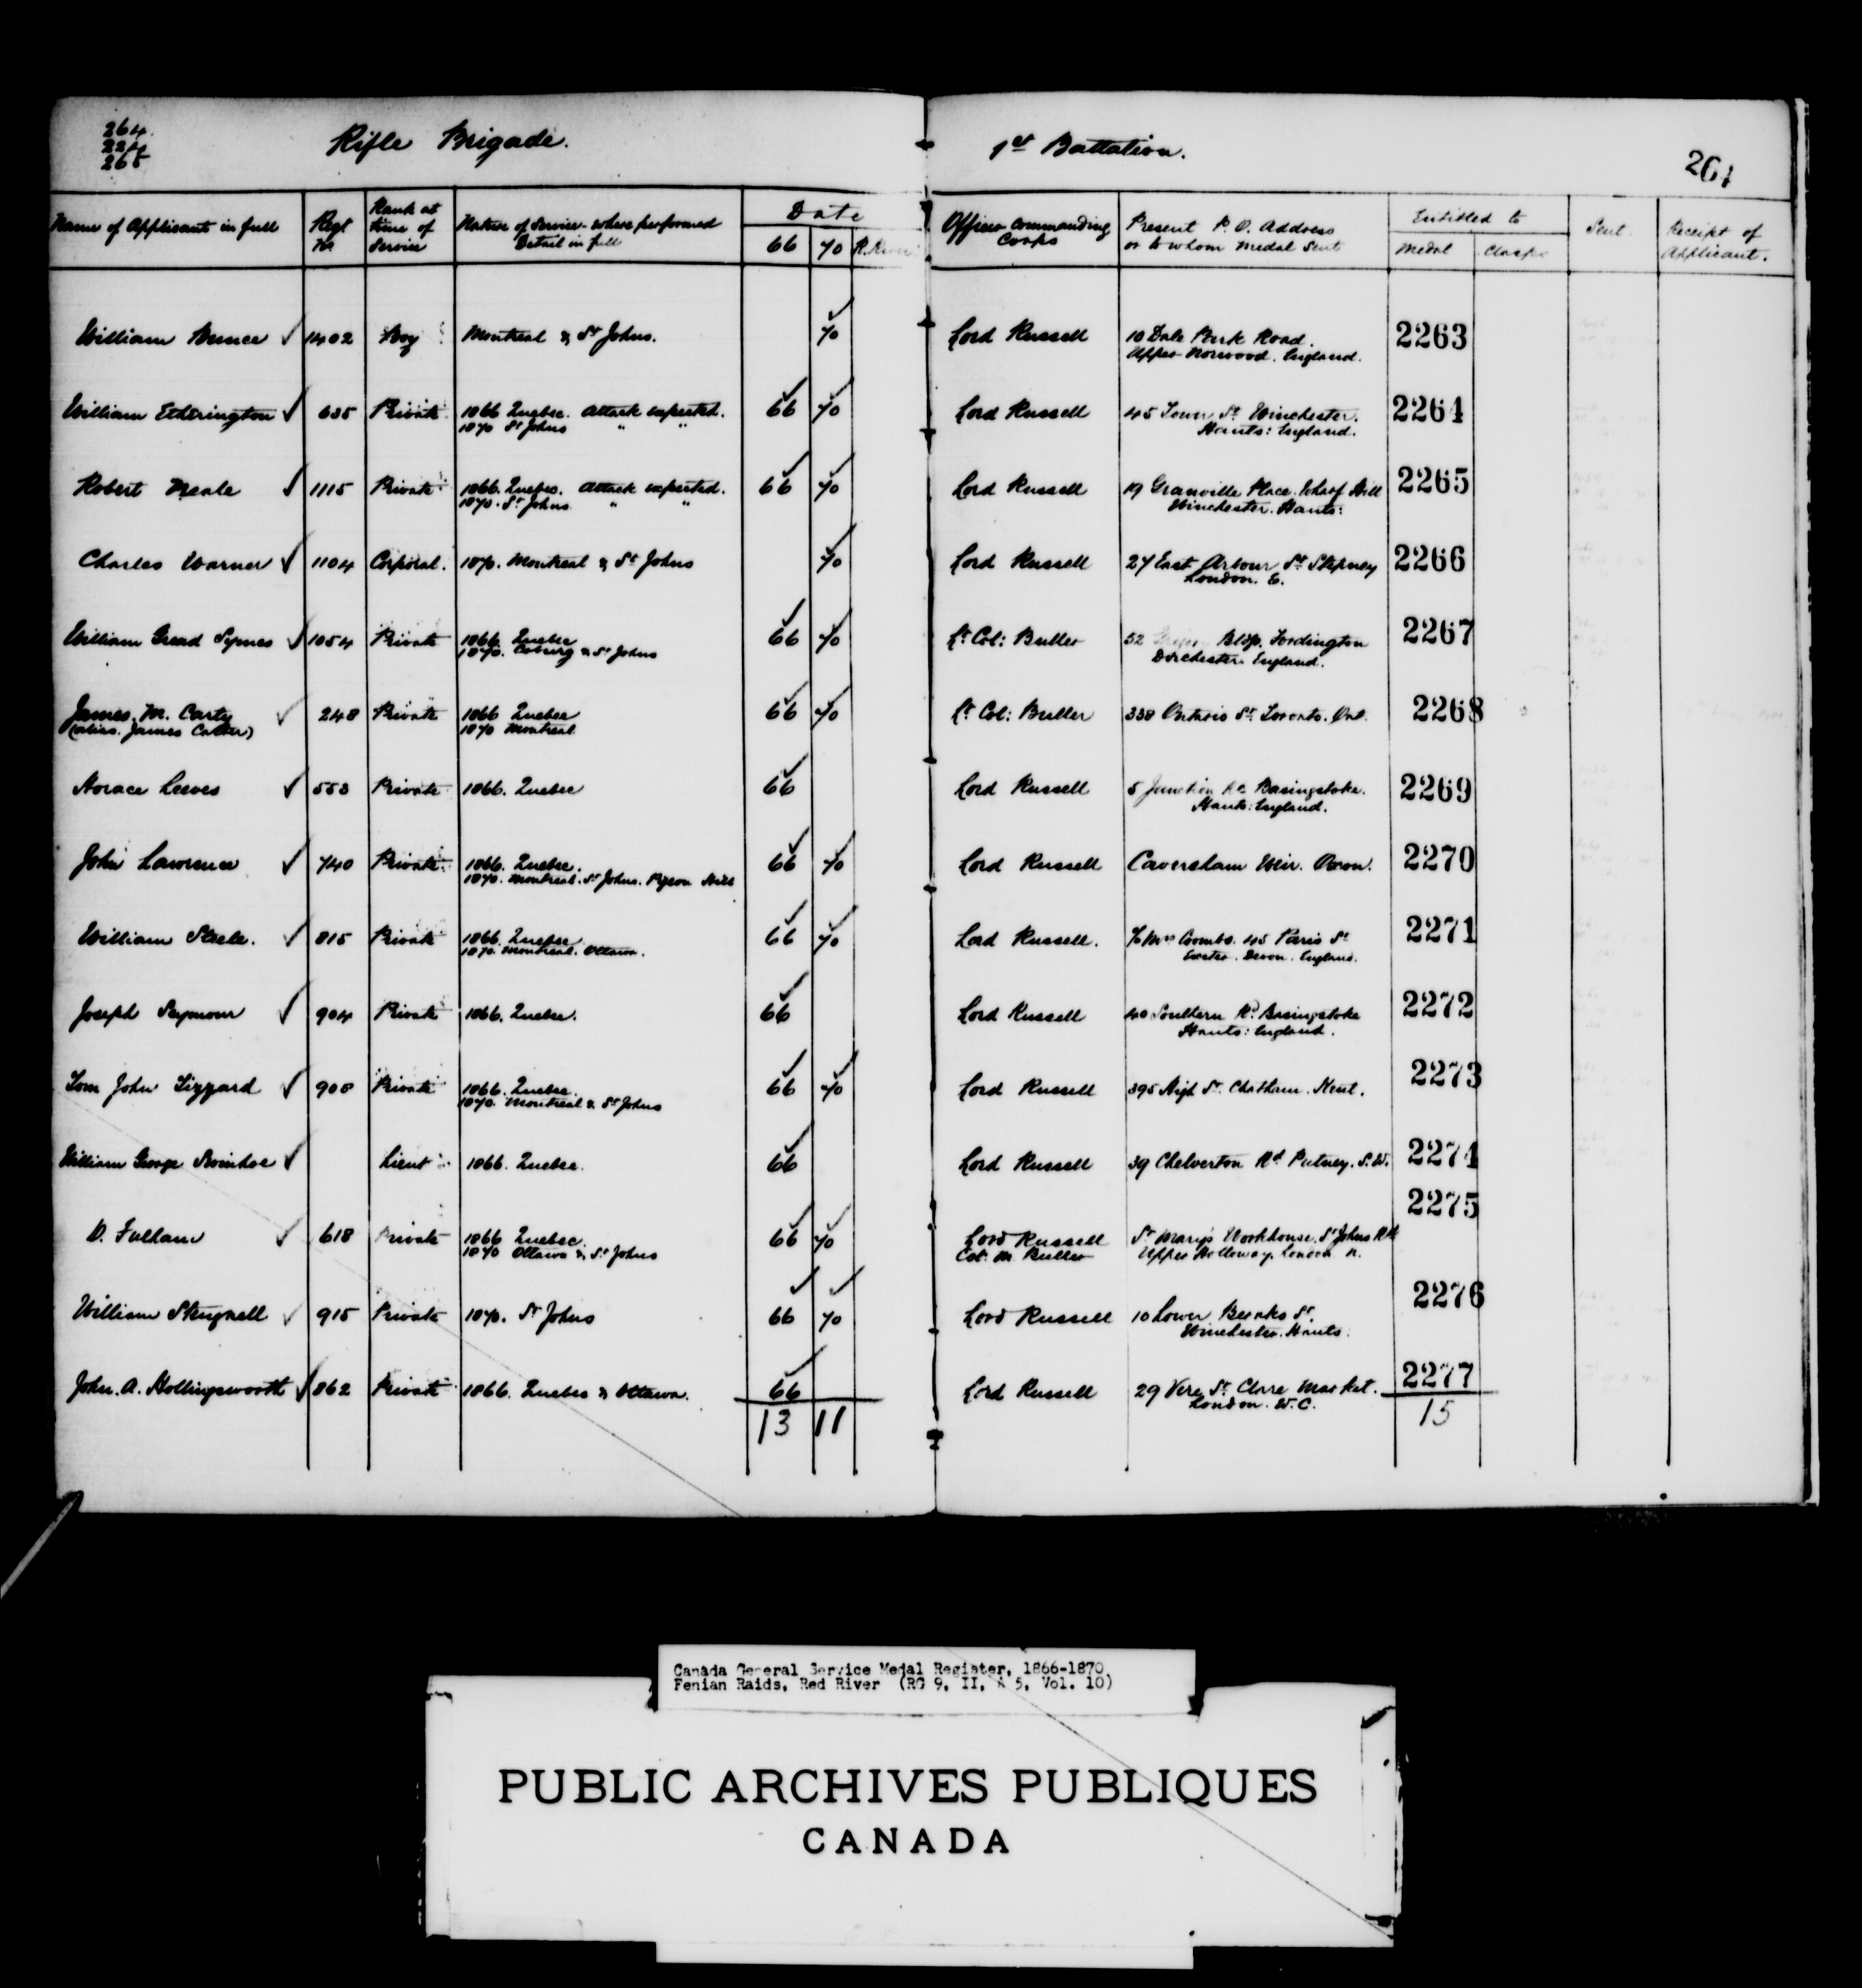 264
224
265
Rifle Brigade.
1st Battalion.
261
Name of Applicant in full
Regt
No
Rank at
time of
Service
Nature of Service - where performed
Detail in full
Date
66 70 R. River
Officer Commanding
Corps
Present P. O. Address
or to whom Medal Sent
Entitled to
Medal Clasps
Sent
Receipt of
Applicant.
William Bunce ✓ 1402 Boy Montreal & St Johns. 70 Lord Russell 10 Dale Park Road. 2263
Upper Norwood. England.
William Etherington ✓ 635 Private 1866 Quebec. Attack expected. 66 70 Lord Russell 45 Tower St. Winchester. 2264
1870 St Johns " " Hants: England.
Robert Neale ✓ 1115 Private 1866. Quebec. Attack expected. 66 70 Lord Russell 19 Granville Place. Wharf Hill 2265
1870. St Johns " " Winchester. Hants:
Charles Warner ✓ 1104 Corporal. 1870. Montreal & St Johns 70 Lord Russell 27 East Arbour St Stepney 2266
London. E.
William Gread Symes ✓ 1054 Private 1866. Quebec 66 70 Lt Col: Buller 52 Bldgs. Fordington 2267
1870. Coburg & St Johns Dorchester. England.
James. M. Carty ✓ 248 Private 1866 Quebec 66 70 Lt Col: Buller 338 Ontario St Toronto. Ont. 2268
(alias. James Carter) 1870 Montreal
Horace Leeves ✓ 553 Private 1866. Quebec 66 Lord Russell 5 Junction Rd Basingstoke. 2269
Hants: England.
John Lawrence ✓ 740 Private 1866. Quebec. 66 70 Lord Russell Caversham Weir. Oxon. 2270
1870. Montreal. St Johns. Pigeon Hill
William Steele. ✓ 815 Private 1866. Quebec 66 70 Lord Russell. c/o Mrs Coombs. 45 Paris St 2271
1870. Montreal. Ottawa. Exeter. Devon. England.
Joseph Seymour ✓ 904 Private 1866. Quebec. 66 Lord Russell 40 Southern Rd. Basingstoke 2272
Hants: England.
Tom John Tizzard ✓ 908 Private 1866. Quebec. 66 70 Lord Russell 395 High St. Chatham. Kent. 2273
1870. Montreal & St Johns
William George Swinhoe ✓ Lieut 1866. Quebec. 66 Lord Russell 39 Chelverton Rd Putney. S.W. 2274
D. Fulham ✓ 618 Private 1866 Quebec. 66 70 Lord Russell St Mary's Workhouse. St Johns Rd 2275
1870 Ottawa & St Johns Col: M. Buller Upper Holloway. London N.
William Stugnell ✓ 915 Private 1870. St Johns 66 70 Lord Russell 10 Lower Brooks St. 2276
Winchester. Hants.
John. A. Hollingsworth ✓ 862 Private 1866. Quebec & Ottawa. 66 Lord Russell 29 Vere St. Clare Market. 2277
London. W.C.
13 11 15
Canada General Service Medal Register, 1866-1870,
Fenian Raids, Red River (RG 9, II, A 5, Vol. 10)
PUBLIC ARCHIVES PUBLIQUES
CANADA